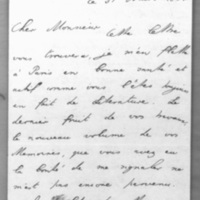 ce 31
Cher Monsieur
Cette lettre
vous trouvera, je m'en flatte
à Paris en bonne santé et
actif comme vous l'êtes toujours
en fait de littérature. Le
dernier fruit de vos travaux
le nouveau volume de vos
Memoires, que vous avez eu
la bonté de me signaler ne
m'est pas encore parvenu.